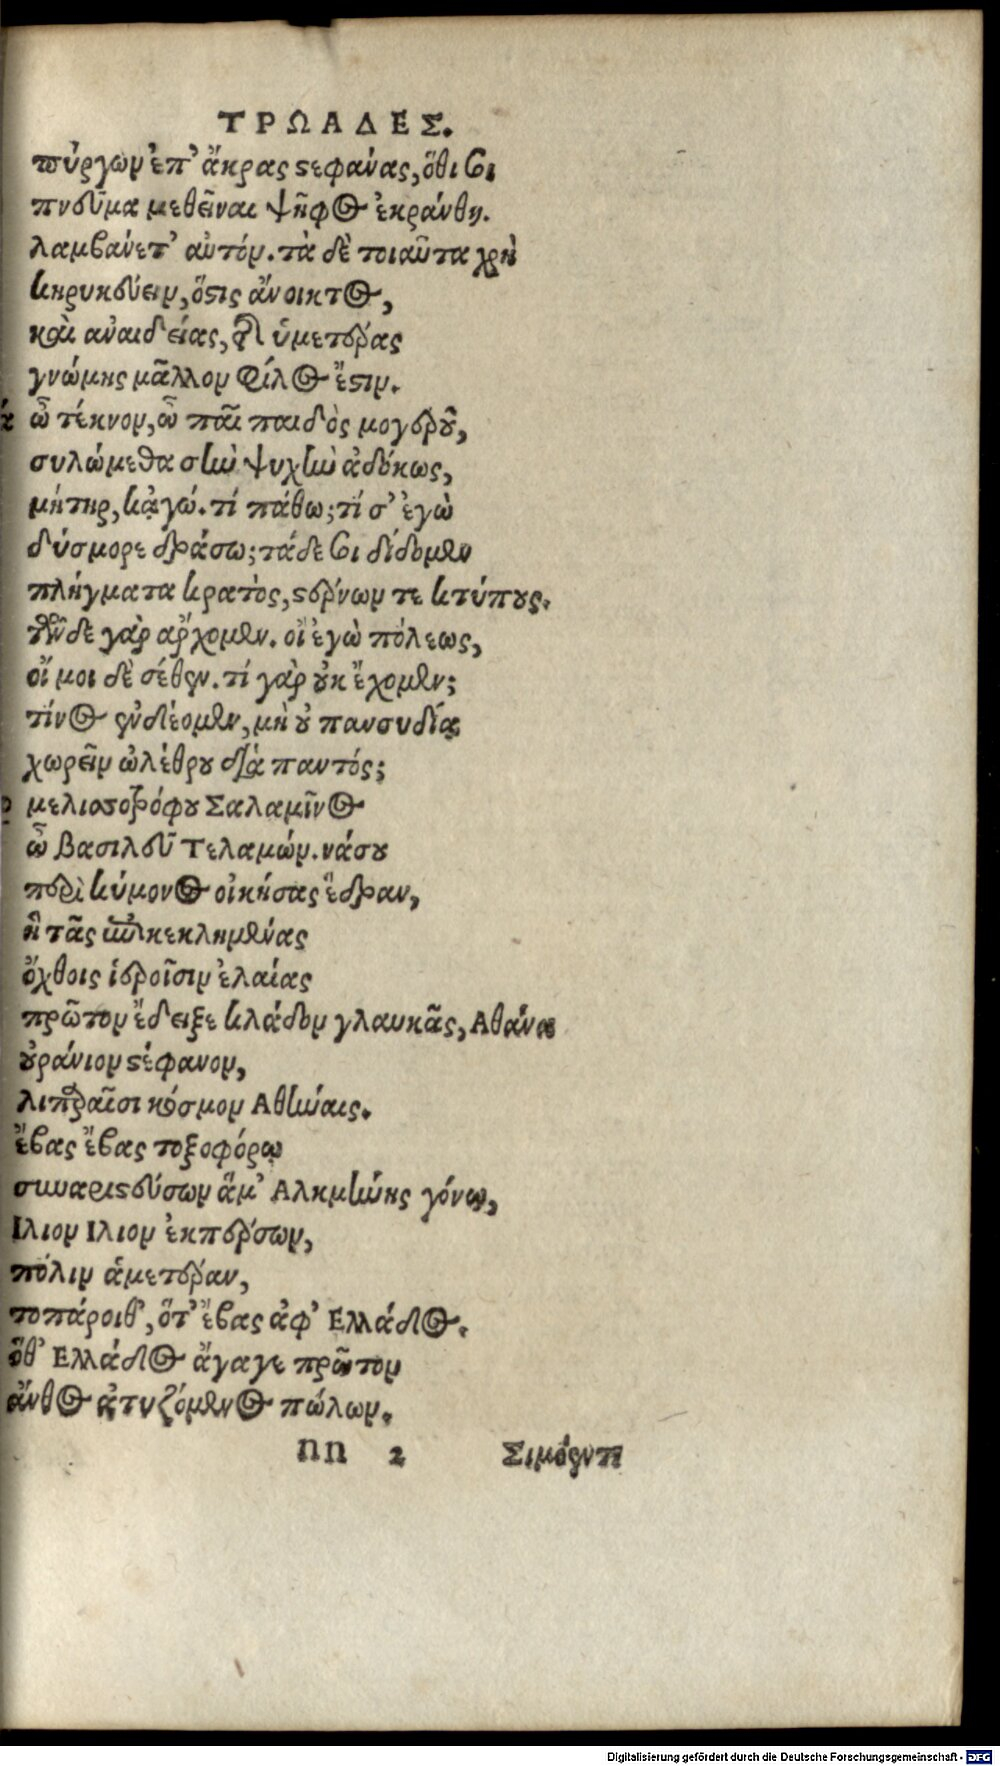 ΤΡΩΑΔΕΣ.
πύργων ἐπ' ἄκρας στεφάνας, ὅθι σοι
πνεῦμα μεθεῖναι ψῆφος ἐκράνθη.
λαμβάνετ' αὐτόν. τὰ δὲ τοιαῦτα χρὴ
κηρυκεύειν, ὅστις ἄνοικτος,
καὶ ἀναιδείας, τῆς ὑμετέρας
γνώμης μᾶλλον φίλος ἔστιν.
ὦ τέκνον, ὦ παῖ παιδὸς μογεροῦ,
συλώμεθα σὴν ψυχὴν ἀδίκως,
μήτηρ, κᾀγώ. τί πάθω; τί σ' ἐγὼ
δύσμορε δράσω; τάδε σοι δίδομεν
πλήγματα κρατὸς, στέρνων τε κτύπους.
τῶνδε γὰρ ἄρχομεν. οἲ ἐγὼ πόλεως,
οἴ μοι δὲ σέθεν. τί γὰρ οὐκ ἔχομεν;
τίνος ἐνδέομεν, μὴ οὐ πανσυδίᾳ
χωρεῖν ὠλέθρου διὰ παντός;
μελισσοτρόφου Σαλαμῖνος
ὦ βασιλεῦ Τελαμών. νάσου
περὶ κύμονος οἰκήσας ἕδραν,
ἢ τᾶς ἐπικεκλημένας
ὄχθοις ἱεροῖσιν ἐλαίας
πρῶτον ἔδειξε κλάδον γλαυκᾶς, Αθάνα
οὐράνιον στέφανον,
λιπαραῖσι κόσμον Αθήναις.
ἔβας ἔβας τοξοφόρῳ
συναριστεύσων ἅμ' Αλκμήνης γόνῳ,
Ιλιον Ιλιον ἐκπέρσων,
πόλιν ἁμετέραν,
τοπάροιθ', ὅτ' ἔβας ἀφ' Ελλάδος.
ὅθ' Ελλάδος ἄγαγε πρῶτον
ἄνθος ἀτυζόμενος πώλων.
nn 2 Σιμόεντι
Digitalisierung gefördert durch die Deutsche Forschungsgemeinschaft - DFG